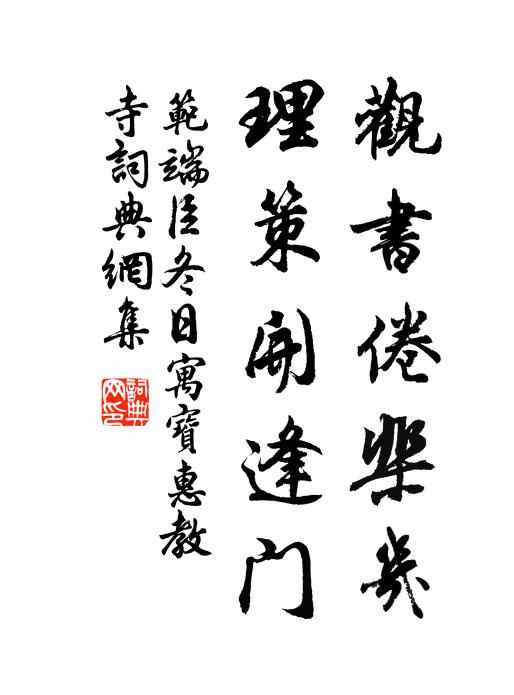 觀書倦棐幾
理策開逢門
範端臣冬日寓寶惠教
寺詞典網集
詞典网印